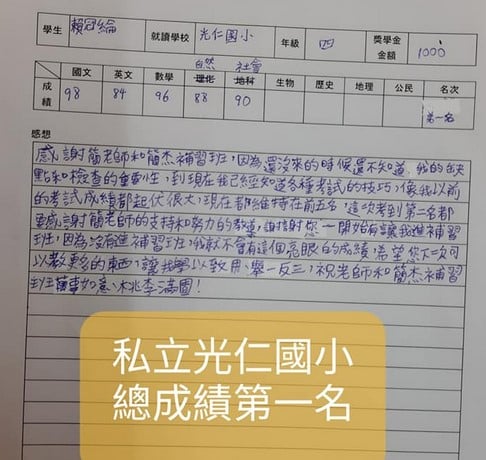 學生 賴冠綸 就讀學校 光仁國小 年級 四 獎學金金額 1000
自然 社會
成績 國文 英文 數學 理化 地科 生物 歷史 地理 公民 名次
98 84 96 88 90 第一名
感想
感謝簡老師和簡杰補習班,因為還沒來的時候還不知道,我的缺
點和檢查的重要性,到現在我已經知道各種考試的技巧,像我以前
的考試成績都起伏很大,現在都維持在前五名,這次考到第一名都
要感謝簡老師的支持和努力的教導,謝謝您一開始有讓我進補習
班,因為沒有進補習班,我就不會有這個亮眼的成績,希望您下次可
以教更多的東西,讓我學以致用、舉一反三,祝老師和簡杰補習
班萬事如意、桃李滿園!
私立光仁國小
總成績第一名